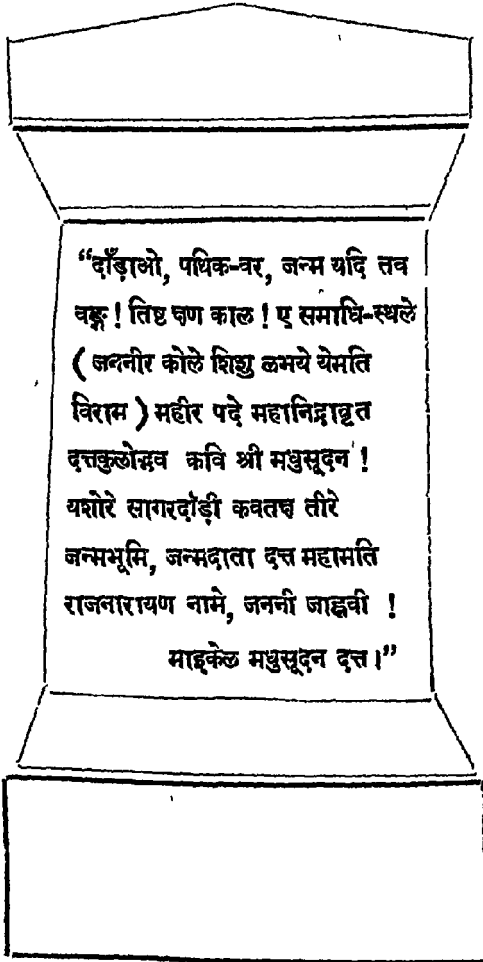 “दाँड़ाओ, पथिक-वर, जन्म यदि तव
वङ्ग ! तिष्ट क्षण काल ! ए समाधि-स्थले
( जननीर कोले शिशु लभये येमति
विराम ) महीर पदे महानिद्रावृत
दत्तकुलोद्भव कवि श्री मधुसूदन !
यशोरे सागरदाँड़ी कवतक्ष तीरे
जन्मभूमि, जन्मदाता दत्त महामति
राजनारायण नामे, जननी जाह्नवी !
माइकेल मधुसूदन दत्त।”